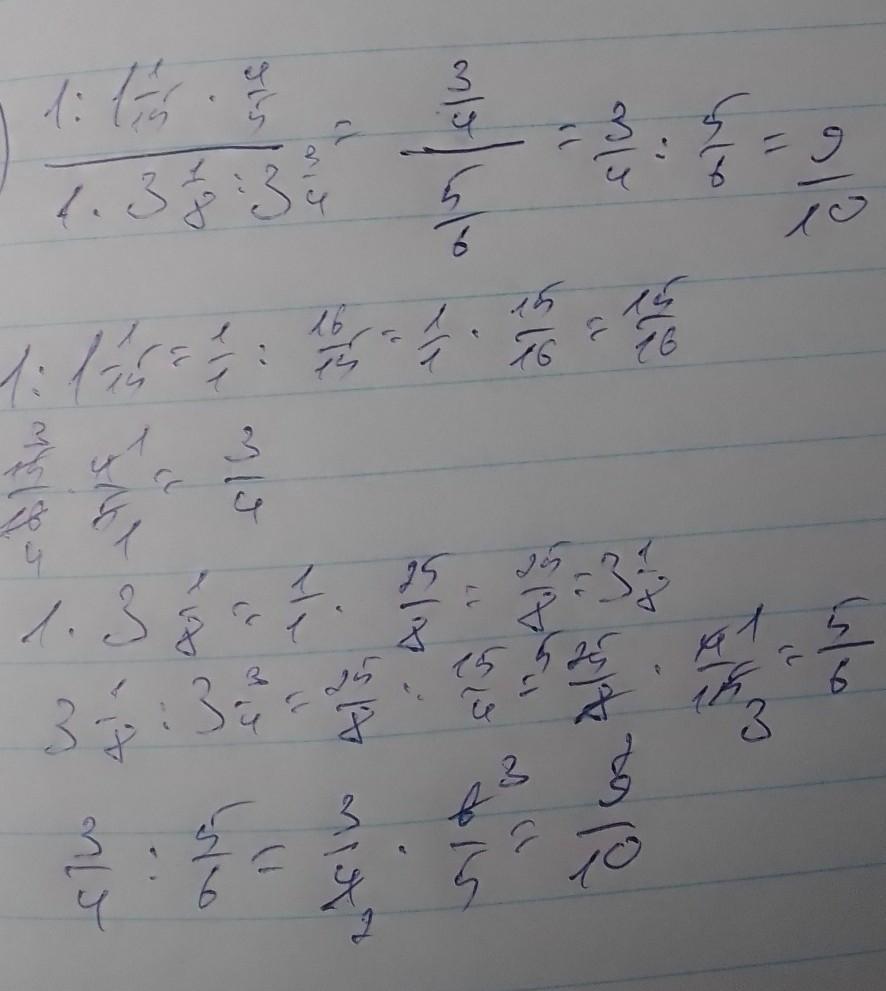 (1 : 1 1/15 · 4/5) / (1 · 3 1/8 : 3 3/4) = (3/4) / (5/6) = 3/4 : 5/6 = 9/10
1 : 1 1/15 = 1/1 : 16/15 = 1/1 · 15/16 = 15/16
15/16 · 4/5 = 3/4
1 · 3 1/8 = 1/1 · 25/8 = 25/8 = 3 1/8
3 1/8 : 3 3/4 = 25/8 : 15/4 = 25/8 · 4/15 = 5/6
3/4 : 5/6 = 3/4 · 6/5 = 9/10